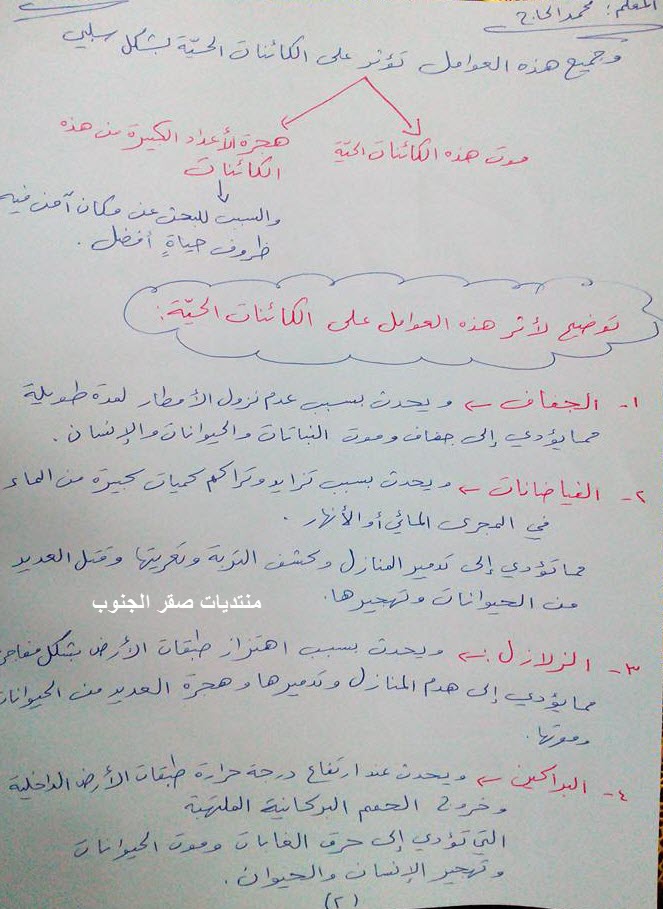 المعلم: محمد الحاج
وجميع هذه العوامل تؤثر على الكائنات الحيّة بشكل سلبي
موت هذه الكائنات الحيّة
هجرة الأعداد الكبيرة من هذه
الكائنات
والسبب للبحث عن مكان آمن فيه
ظروف حياةٍ أفضل.
توضيح لأثر هذه العوامل على الكائنات الحيّة:
١- الجفاف ← ويحدث بسبب عدم نزول الأمطار لمدة طويلة
مما يؤدي إلى جفاف وموت النباتات والحيوانات والإنسان.
٢- الفياضانات ← ويحدث بسبب تزايد وتراكم كميات كبيرة من الماء
في المجرى المائي أو الأنهار.
مما تؤدي إلى تدمير المنازل وكشف التربة وتعريتها وقتل العديد
من الحيوانات وتهجيرها.
منتديات صقر الجنوب
٣- الزلازل ← ويحدث بسبب اهتزاز طبقات الأرض بشكل مفاجئ
مما يؤدي إلى هدم المنازل وتدميرها وهجرة العديد من الحيوانات
وموتها.
٤- البراكين ← ويحدث عند ارتفاع درجة حرارة طبقات الأرض الداخلية
وخروج الحمم البركانية الملتهبة
التي تؤدي إلى حرق الغابات وموت الحيوانات
وتهجير الإنسان والحيوان.
(٢)